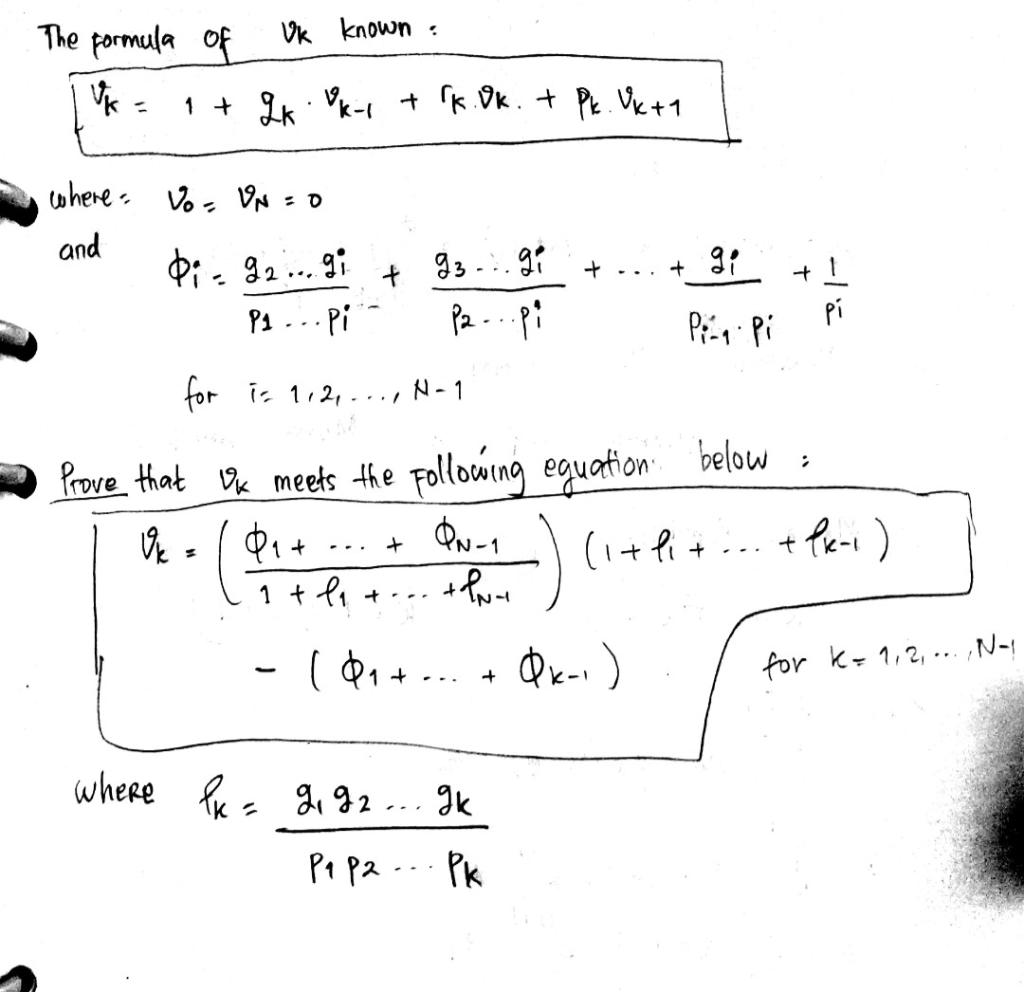 The formula of vk known :
vk = 1 + qk · vk-1 + rk.vk. + Pk. vk+1
where : v0 = vN = 0
and
Φi = q2 ... qi / P1 ... Pi + q3 ... qi / P2 ... Pi + ... + qi / Pi-1 . Pi + 1 / Pi
for i = 1, 2, ..., N-1
Prove that vk meets the following equation below :
vk = ( Φ1 + ... + ΦN-1 / 1 + ρ1 + ... + ρN-1 ) (1 + ρ1 + ... + ρk-1)
- ( Φ1 + ... + Φk-1 ) for k = 1, 2, ..., N-1
where ρk = q1 q2 ... qk / P1 P2 ... Pk